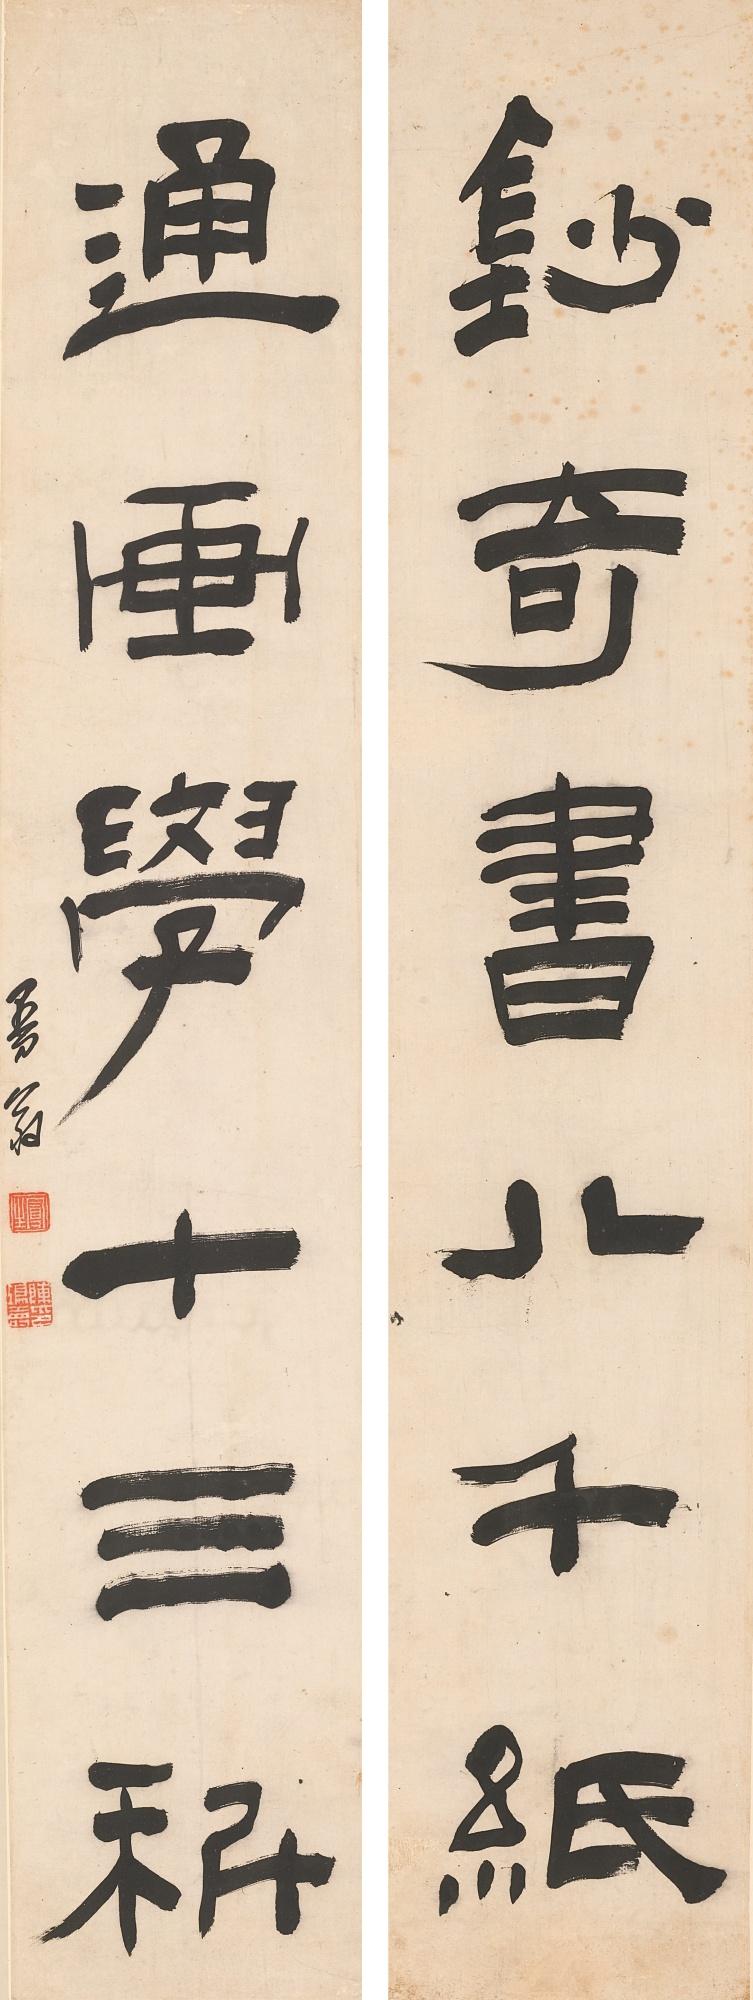 鈔奇書八千紙
通画學十三科
曼翁